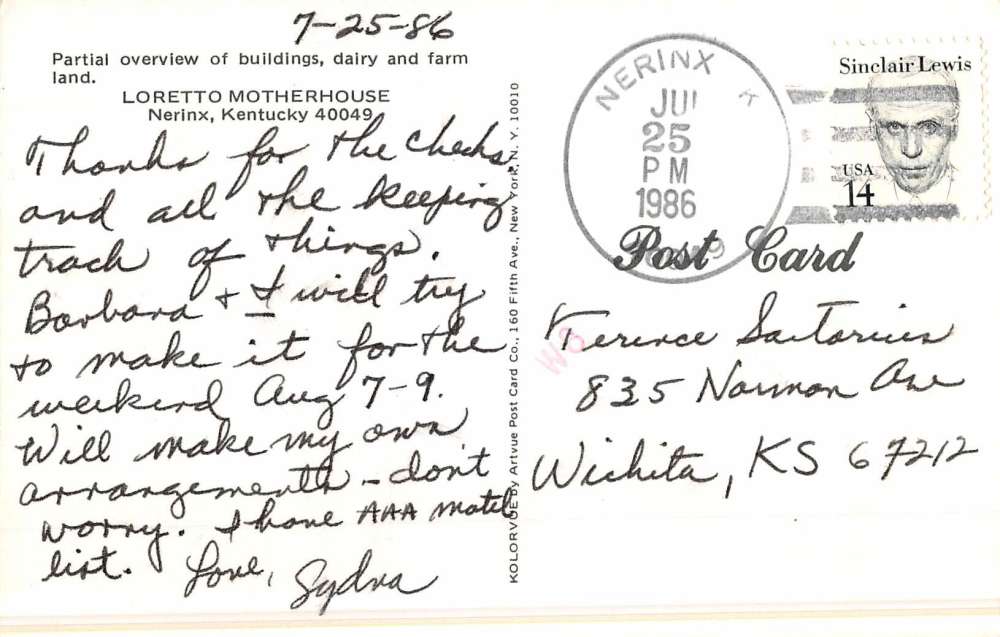 7-25-86
Partial overview of buildings, dairy and farm
land.
LORETTO MOTHERHOUSE
Nerinx, Kentucky 40049
Thanks for the checks
and all the keeping
track of things.
Barbara + I will try
to make it for the
weekend Aug 7-9.
Will make my own
arrangements - don't
worry. I have AAA motel
list. Love, Sydna
KOLORVUE by Artvue Post Card Co., 160 Fifth Ave., New York, N. Y. 10010
NERINX K
JUL
25
PM
1986
Sinclair Lewis
USA
14
Post Card
Terence Sartorius
835 Norman Ave
Wichita, KS 67212